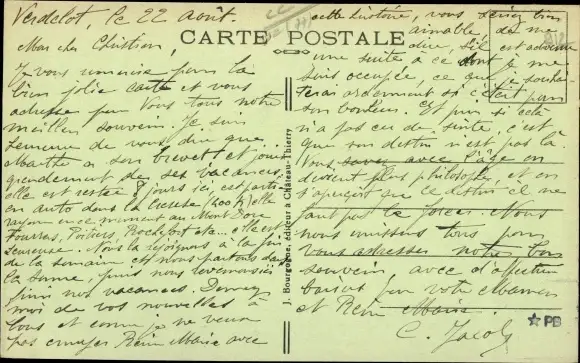 Verdelot, le 22 août.
CARTE POSTALE
Mon cher Christian,
Je vous remercie pour la
bien jolie carte et vous
adresse pour vous tous notre
meilleur souvenir. Je suis
heureuse de vous dire que
Marthe a son brevet et jouit
grandement de ses vacances,
elle est restée 8 jours ici, est partie
en auto dans la Creuse (400 K) elle
en ce moment au Mont Dore
Tours, Poitiers, Rochefort etc... elle est
heureuse. Nous la rejoignons à la fin
de la semaine et nous partons dans
la Somme, puis nous reviendrons
finir nos vacances. Donnez
moi de vos nouvelles à
tous et comme je ne veux
pas ennuyer Reine Marie avec
cette histoire, vous serez bien
aimable, de me
dire, s'il est advenu
une suite à ce dont je me
suis occupée, ce que je souhai-
terai ardemment si c'était pour
son bonheur. Et puis si cela
n'a pas eu de suite, c'est
que son destin n'est pas là.
Vous savez avec l'âge on
devient plus philosophe et on
s'aperçoit que ce destin il ne
faut pas le forcer. Nous
nous unissons tous pour
vous adresser notre bon
souvenir, avec d'affectueux
baisers pour votre Maman
et Reine Marie.
C. Jacob
J. Bourgogne, éditeur à Château-Thierry
★ PB